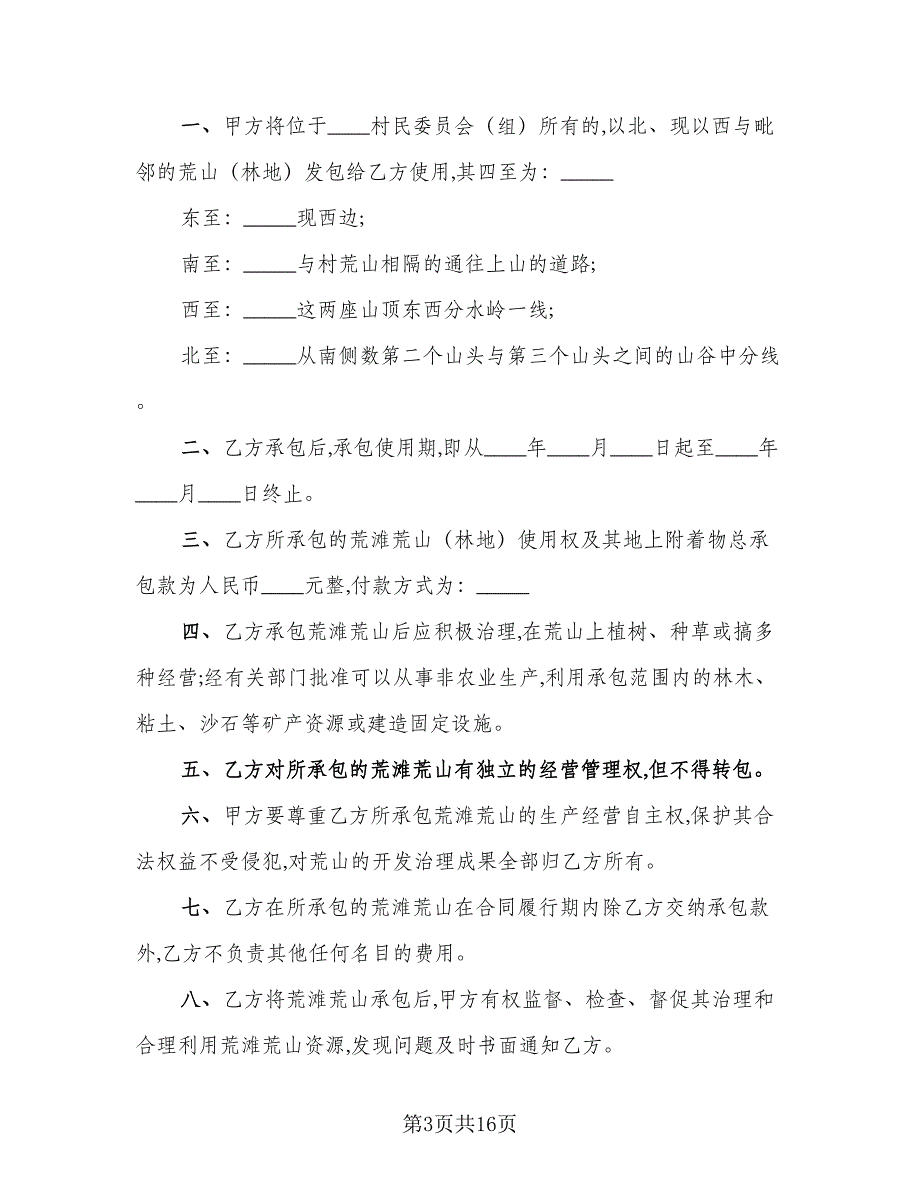 一、甲方将位于____村民委员会（组）所有的,以北、现以西与毗
邻的荒山（林地）发包给乙方使用,其四至为：_____
东至：_____现西边;
南至：_____与村荒山相隔的通往上山的道路;
西至：_____这两座山顶东西分水岭一线;
北至：_____从南侧数第二个山头与第三个山头之间的山谷中分线
。
二、乙方承包后,承包使用期,即从____年____月____日起至____年
____月____日终止。
三、乙方所承包的荒滩荒山（林地）使用权及其地上附着物总承
包款为人民币____元整,付款方式为：_____
四、乙方承包荒滩荒山后应积极治理,在荒山上植树、种草或搞多
种经营;经有关部门批准可以从事非农业生产,利用承包范围内的林木、
粘土、沙石等矿产资源或建造固定设施。
五、乙方对所承包的荒滩荒山有独立的经营管理权,但不得转包。
六、甲方要尊重乙方所承包荒滩荒山的生产经营自主权,保护其合
法权益不受侵犯,对荒山的开发治理成果全部归乙方所有。
七、乙方在所承包的荒滩荒山在合同履行期内除乙方交纳承包款
外,乙方不负责其他任何名目的费用。
八、乙方将荒滩荒山承包后,甲方有权监督、检查、督促其治理和
合理利用荒滩荒山资源,发现问题及时书面通知乙方。
第3页共16页